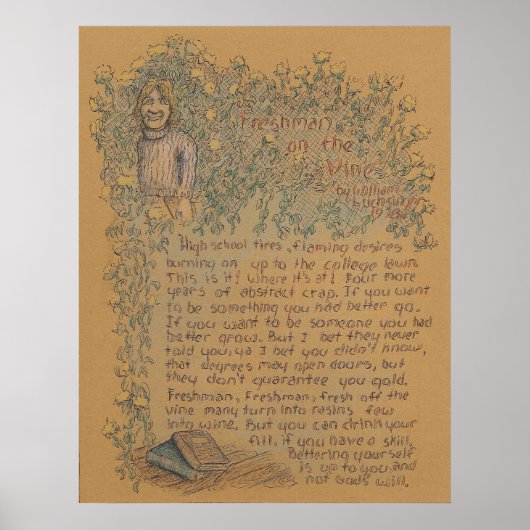 Freshman
on the
Vine
by William
High school fires, flaming desires
burning on up to the college lawn.
This is it! Where it's at! Four more
years of abstract crap. If you want
to be something you had better go.
If you want to be someone you had
better grow. But I bet they never
told you, ya I bet you didn't know,
that degrees may open doors, but
they don't guarantee you gold.
Freshman, Freshman, fresh off the
vine many turn into rasins few
into wine. But you can drink your
fill, if you have a skill,
Bettering yourself
is up to you and
not gods will.